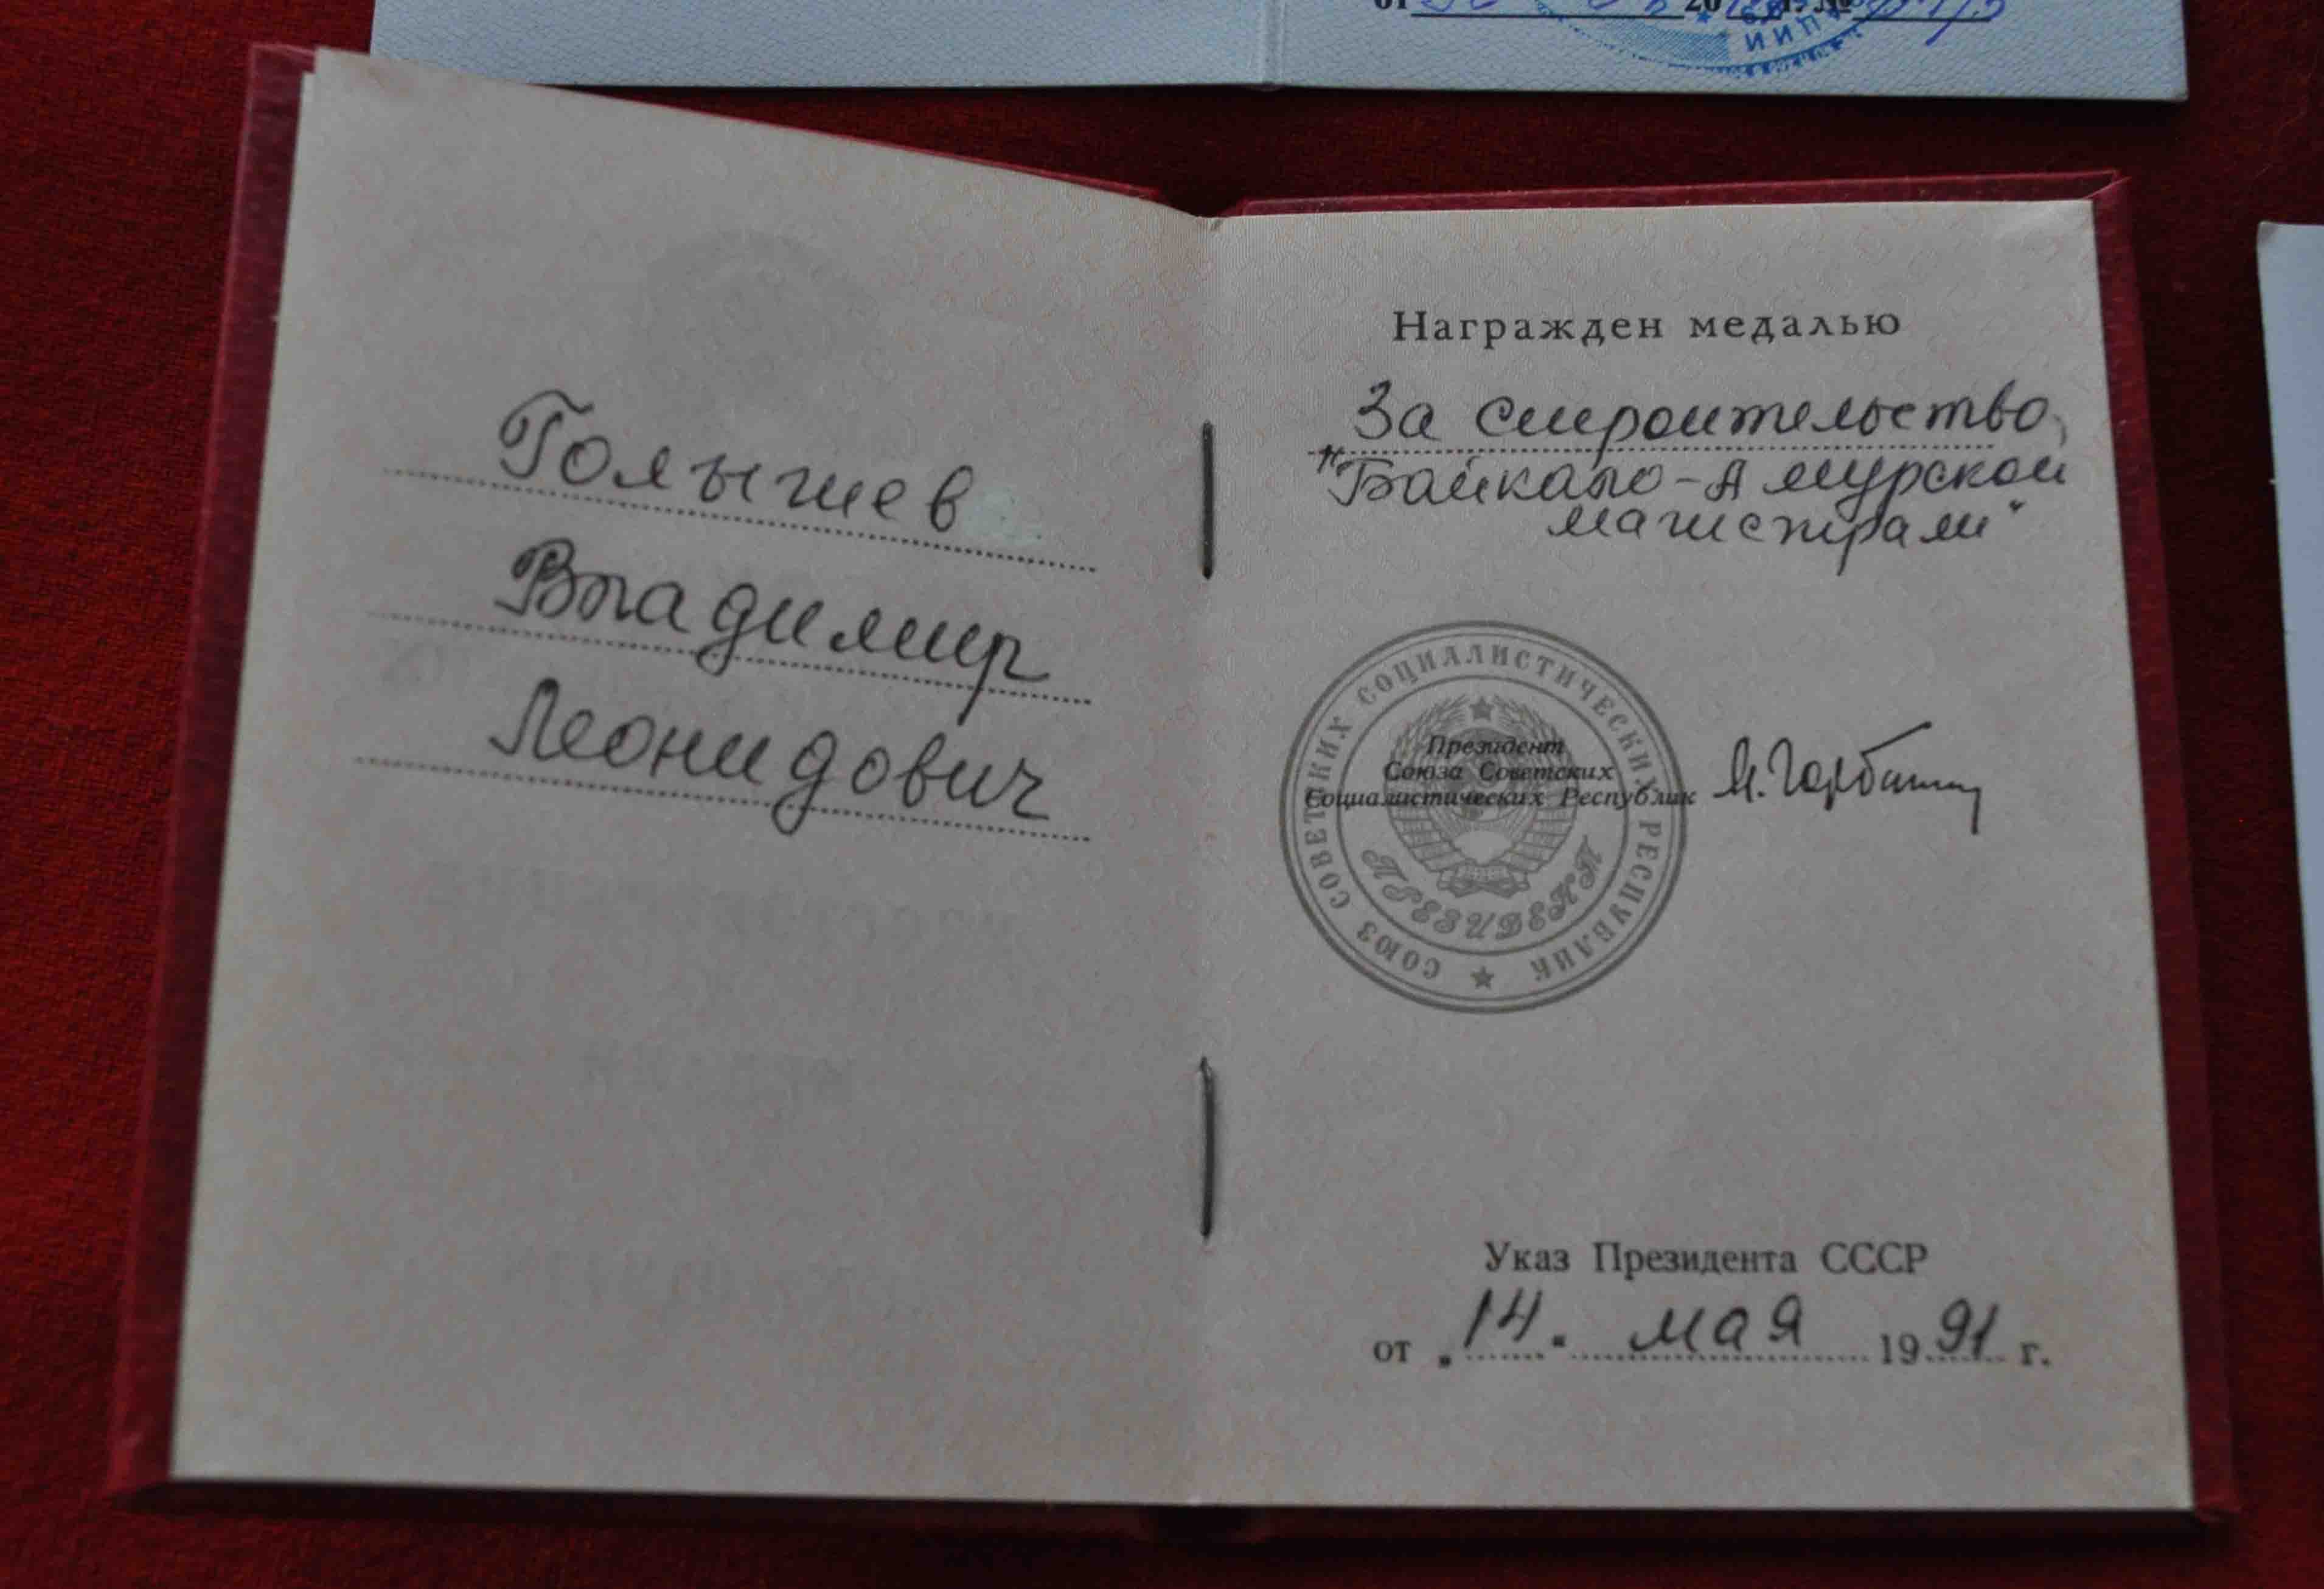 от 20
ЦИИ
Голышев
Владимир
Леонидович
Награжден медалью
За строительство
"Байкало-Амурской
магистрали"
СОЮЗ СОВЕТСКИХ СОЦИАЛИСТИЧЕСКИХ РЕСПУБЛИК
Президент
Союза Советских
Социалистических Республик
М. Горбачев
ПРЕЗИДЕНТ
Указ Президента СССР
от „14" мая 1991 г.